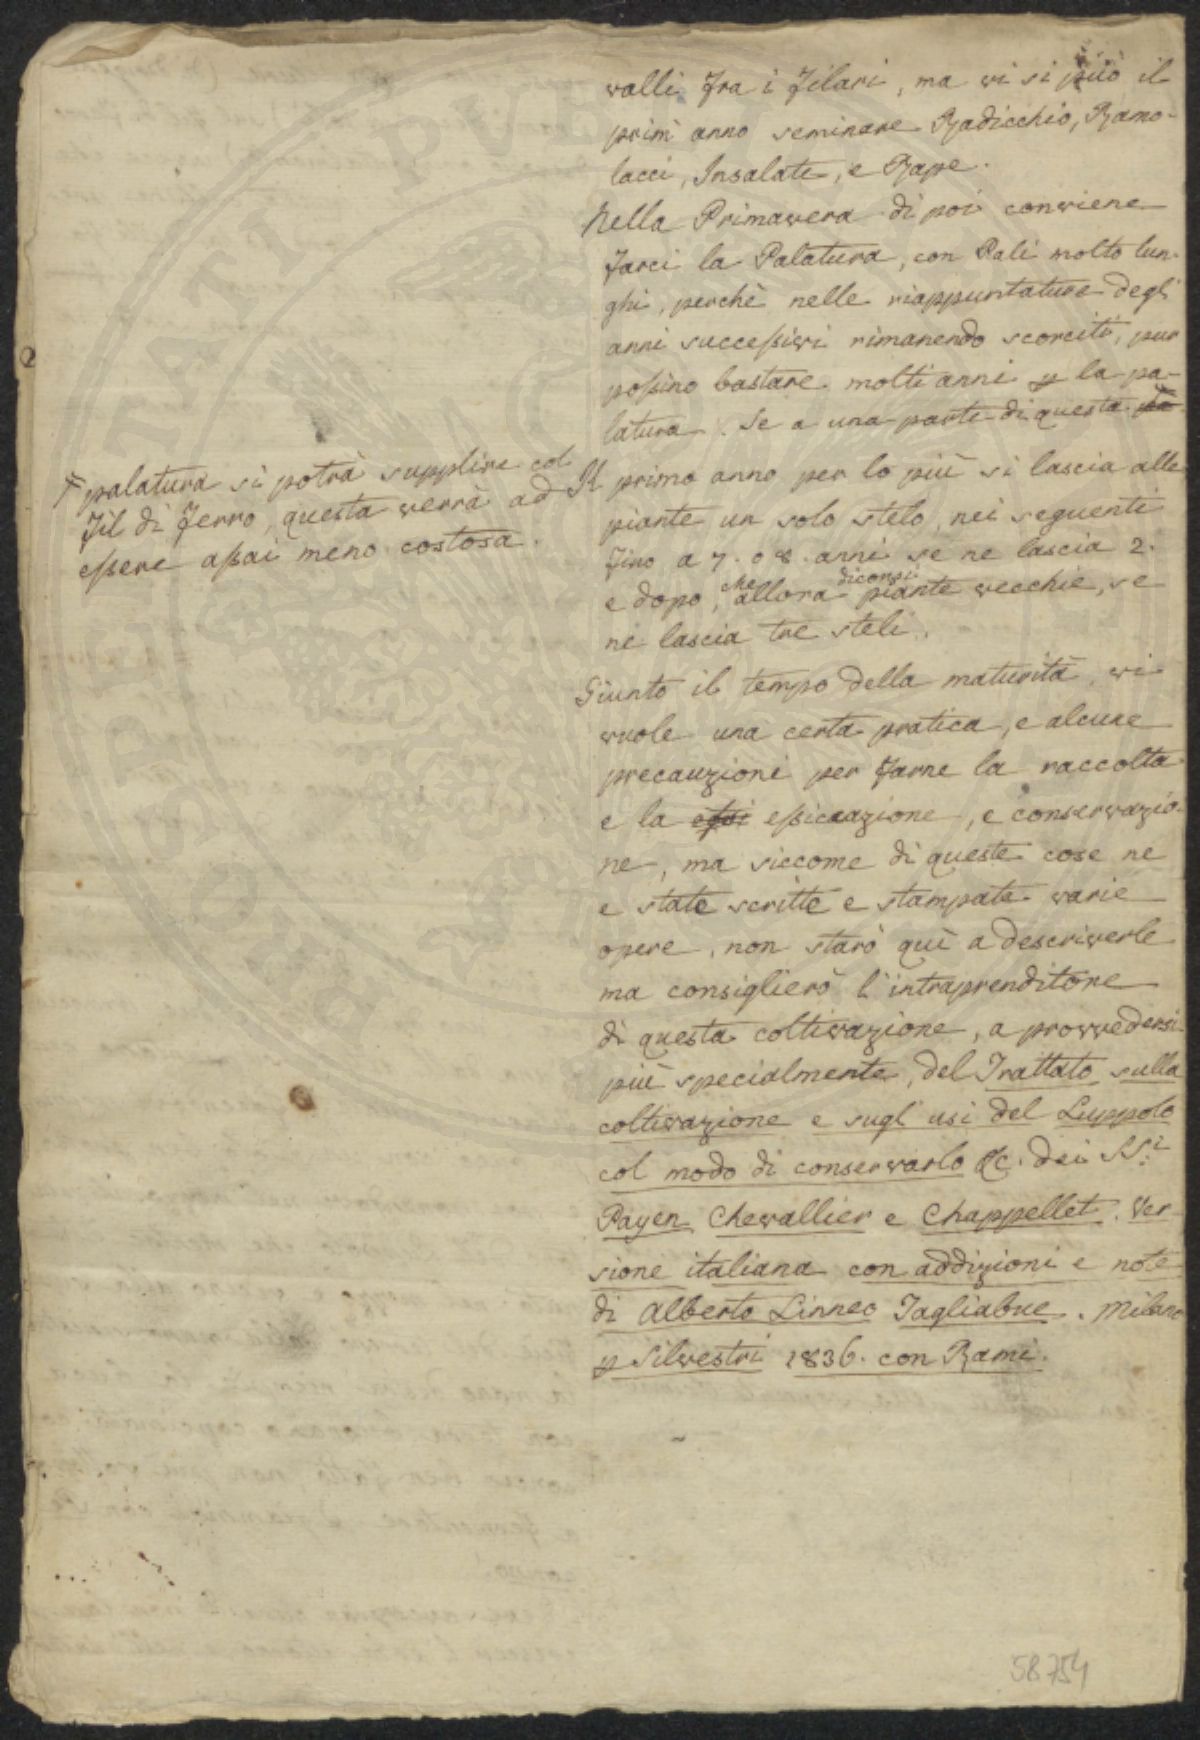 valli fra i filari, ma vi si può il
prim' anno seminare Radicchio, Ramo-
lacci, Insalate, e Rape.
Nella Primavera di poi conviene
farci la Palatura, con Pali molto lun-
ghi, perchè nelle riappuntature degli
anni successivi rimanendo scorciti, pur
possino bastare molti anni p la pa-
latura. Se a una parte di questa
+ palatura si potrà supplire col
fil di ferro, questa verrà ad
essere assai meno costosa.
Il primo anno per lo più si lascia alle
piante un solo stelo, nei seguenti
fino a 7. o 8. anni se ne lascia 2.
e dopo, che allora diconsi piante vecchie, se
ne lascia tre steli.
Giunto il tempo della maturità, vi
vuole una certa pratica, e alcune
precauzioni per farne la raccolta
e la essi essiccazione, e conservazio-
ne, ma siccome di queste cose ne
e state scritte e stampate varie
opere, non starò quì a descriverle
ma consiglierò l'intraprenditore
di questa coltivazione, a provvedersi
più specialmente, del Trattato sulla
coltivazione e sugl' usi del Luppolo
col modo di conservarlo &c. dei SS.i
Payen Chevallier e Chappellet. Ver-
sione italiana con addizioni e note
di Alberto Linneo Tagliabue. Milano
p Silvestri 1836. con Rami.
58754